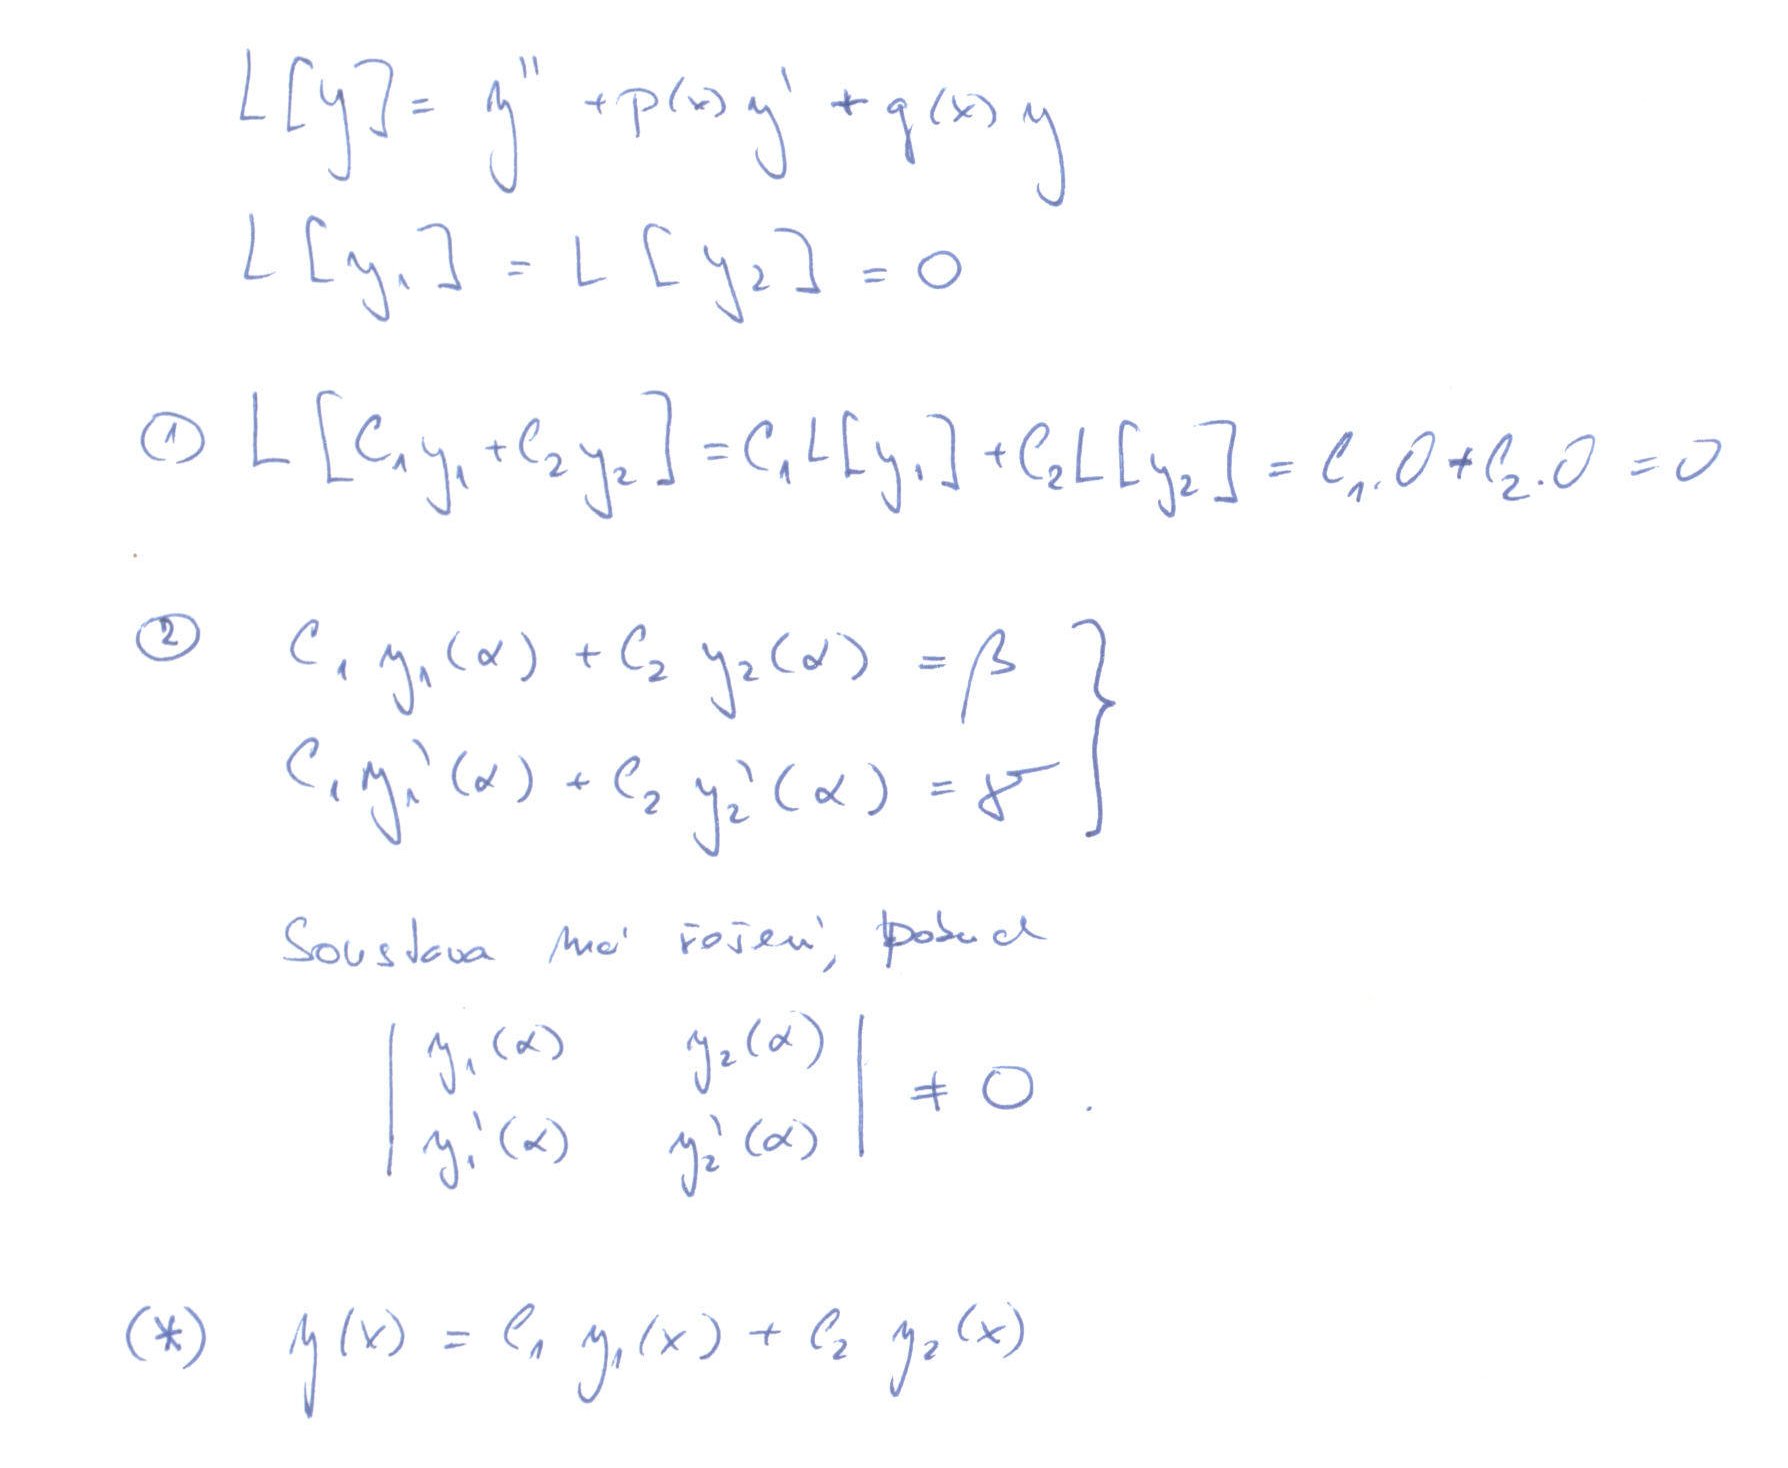 L[y] = y'' + p(x) y' + q(x) y
L[y₁] = L[y₂] = 0
① L[C₁y₁ + C₂y₂] = C₁L[y₁] + C₂L[y₂] = C₁.0 + C₂.0 = 0
② C₁ y₁(α) + C₂ y₂(α) = β
C₁ y₁'(α) + C₂ y₂'(α) = γ }
Soustava má řešení, pokud
| y₁(α) y₂(α) |
| y₁'(α) y₂'(α) | ≠ 0 .
(*) y(x) = C₁ y₁(x) + C₂ y₂(x)